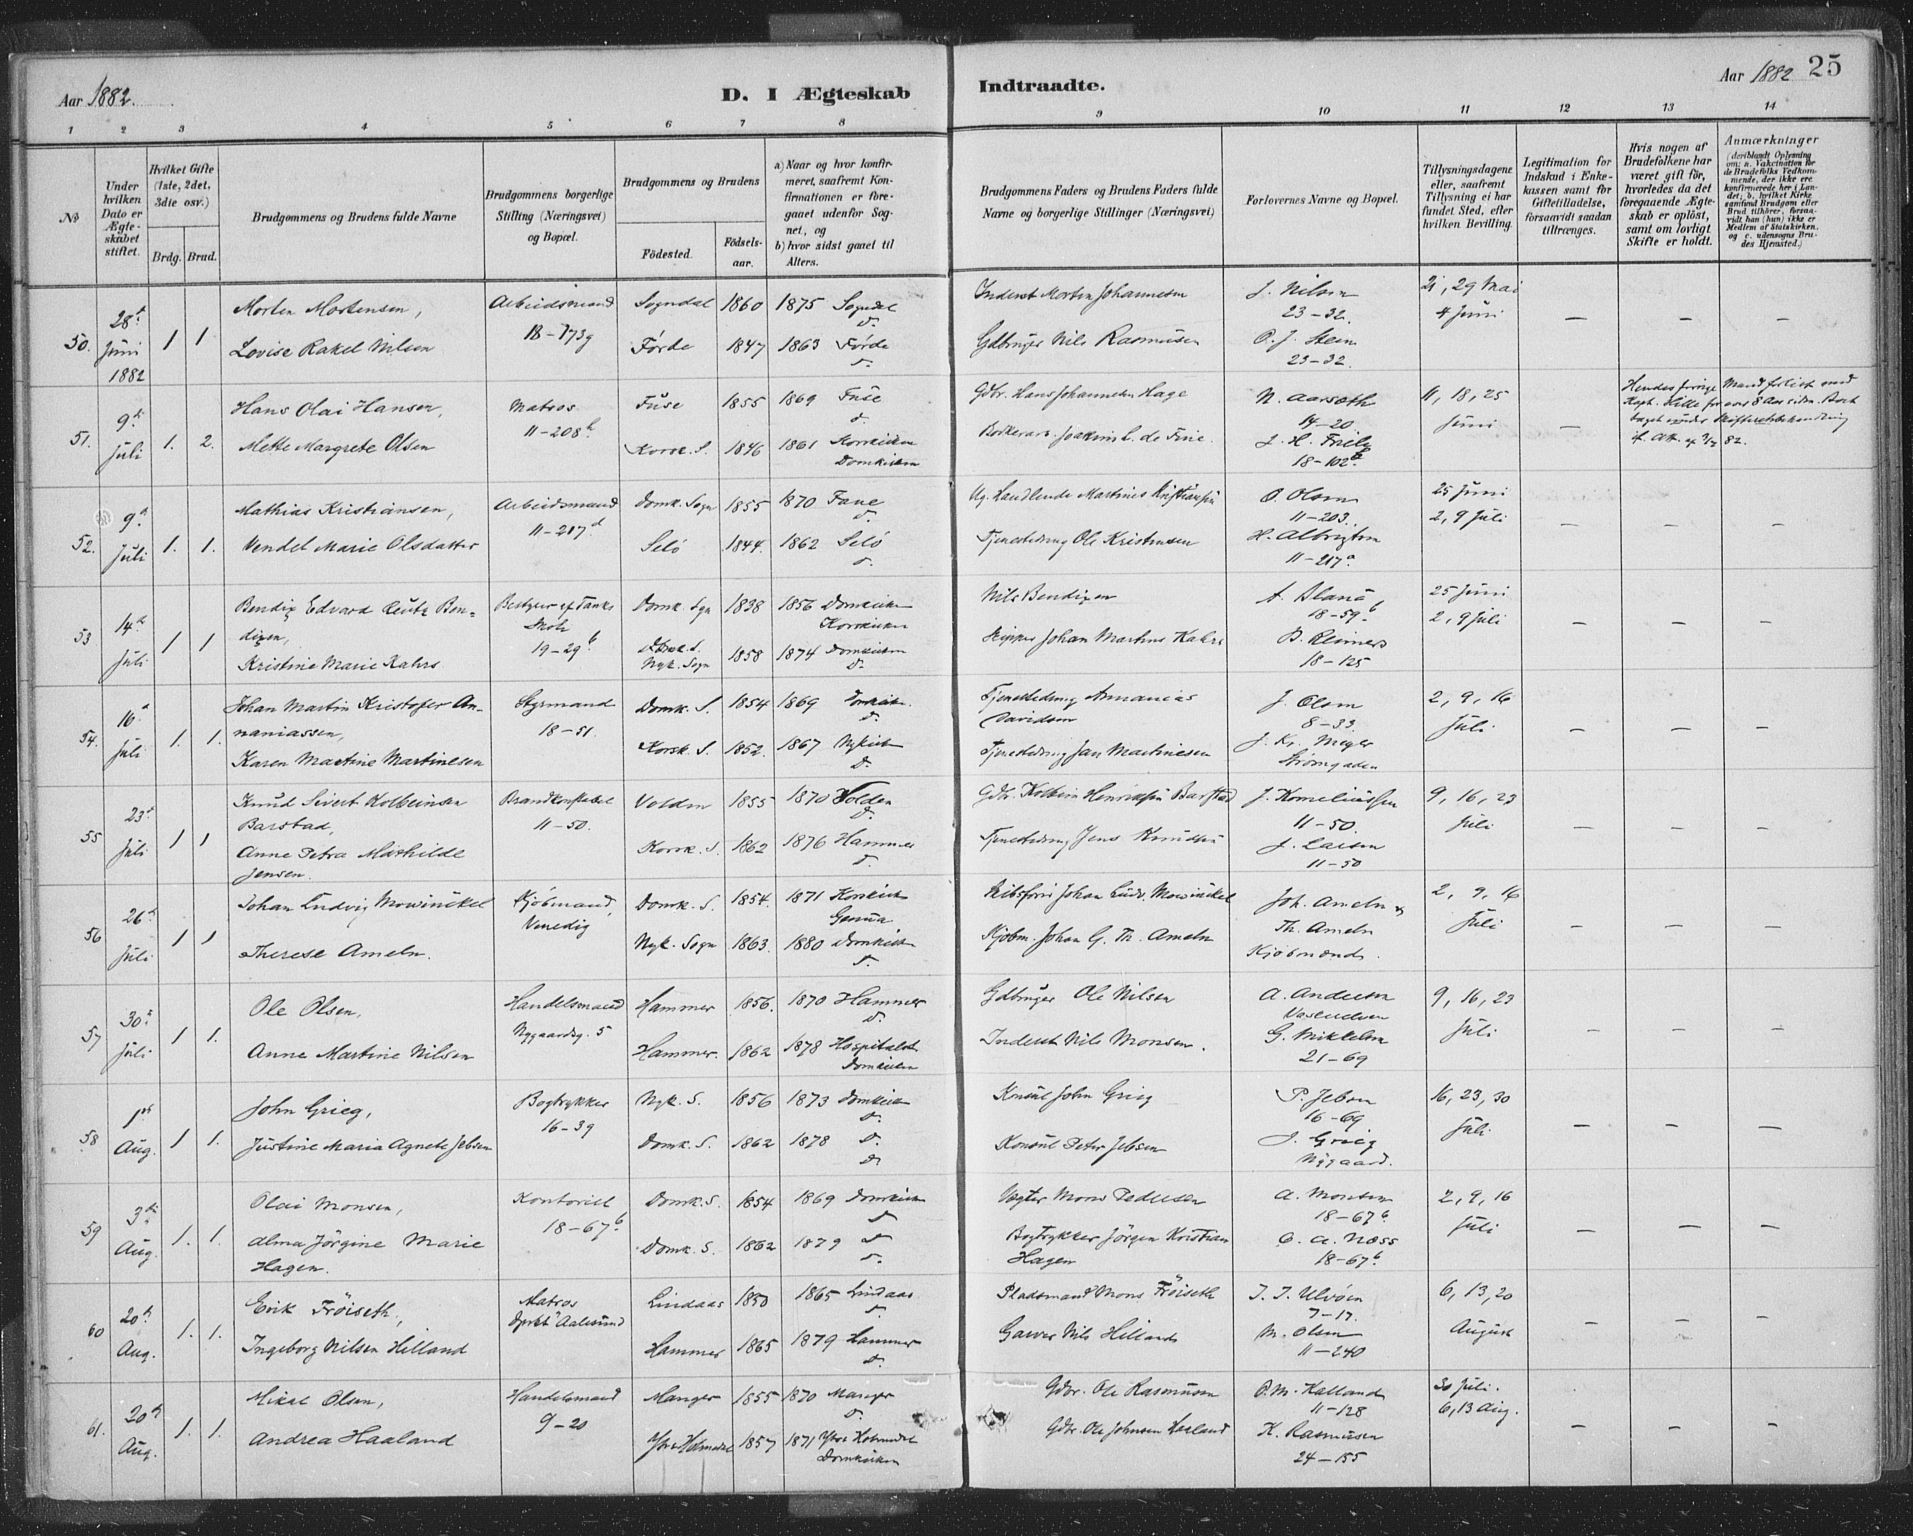 Aar 1882.
D. I Ægteskab
Indtraadte.
Aar 1882
25
1 2 3 4 5 6 7 8 9 10 11 12 13 14
№
Under hvilken Dato er Ægteskabet stiftet.
Hvilket Gifte (1ste, 2det, 3die osv.)
Brdg. Brud.
Brudgommens og Brudens fulde Navne
Brudgommens borgerlige Stilling (Næringsvei) og Bopæl.
Brudgommens og Brudens
Fødested.
Fødselsaar.
a) Naar og hvor konfirmeret, saafremt Konfirmationen er foregaaet udenfor Sognet, og
b) hvor sidst gaaet til Alters.
Brudgommens Faders og Brudens Faders fulde Navne og borgerlige Stillinger (Næringsvei)
Forlovernes Navne og Bopæl.
Tillysningsdagene eller, saafremt Tillysning ei har fundet Sted, efter hvilken Bevilling.
Legitimation for Indskud i Enkekassen samt for Giftetilladelse, forsaavidt saadan tiltrænges.
Hvis nogen af Brudefolkene har været gift før, hvorledes da det foregaaende Ægteskab er opløst, samt om lovligt Skifte er holdt.
Anmærkninger
(deriblandt Oplysning om: a. Vakcination for de Brudefolks Vedkommende, der ikke ere konfirmerede her i Landet; b. hvilket Kirkesamfund Brudgom eller Brud tilhører, forsaavidt han (hun) ikke er Medlem af Statskirken, og c. udensogns Brudes Hjemsted.)
50. 28de Juni 1882 1 1
Morten Mortensen, Arbeidsmand 18-173g Sogndal 1860 1875 Sogndal d.
Inderst Morten Johannesen J. Nilsen 23-32. 21, 29 Mai 4 Juni — — —
Lovise Rakel Nilsen Førde 1847 1863 Førde d.
Gdbruger Nils Rasmusen O. J. Steen 23-32.
51. 9de Juli 1. 2.
Hans Olai Hansen, Matros 11-208b Fuse 1855 1869 Fuse d.
Gdbr. Hans Johannesen Hage N. Aarseth 14-20. 11, 18, 25 Juni —
Mette Margrete Olsen Korsk. S. 1846 1861 Korskirken Domkirken
J. H. Friis 18-102b.
Hendes forrige Mand forlist med Kapt. Kille for over 8 Aar siden.
52. 9de Juli 1. 1.
Mathias Kristiansen, Arbeidsmand 11-217d Domk. Sogn 1855 1870 Fane d.
O. Olsen 11-203. 25 Juni 2, 9 Juli — — —
Vendel Marie Olsdatter Selö 1844. 1862 Selö d.
Tjenestedreng Ole Kristensen H. Albrigtsen 11-217a.
53 14de Juli 1 1
Bendix Edvard Ceutz Bendixen, Bestyrer af Tanks Skole 19-29b Domk. Sgn 1838 1856 Domkirken Korskirken
Nils Bendixen 18-59b 25 Juni 2, 9 Juli — — —
Kristine Marie Kahrs Nyk. Sogn 1858 1874 Domkirken d.
Skipper Johan Martins Kahrs B. Reimers 18-125
54. 16de Juli 1. 1.
Johan Martin Kristofer Ananiassen, Styrmand 18-51. Domk. S. 1854 1869 Domkirken d.
Tjenestedreng Annanias Davidsen J. Olsen 8-33. 2, 9, 16 Juli. — — —
Karen Martine Martinesen Korsk. S. 1852. 1867 Nykirken d.
Tjenestedreng Jan Martinesen J. Kr. Meyer Strömgaden
55 23de Juli 1 1
Knud Sivert Kolbeinsen Barstad, Brandkonstabel 11-50. Volden 1855 1870 Volden d.
Gdbr. Kolbein Henriksen Barstad J. Korneliussen 11-50. 9, 16, 23 Juli — — —
Anne Petra Mathilde Jensen. Korsk. S. 1862 1876 Hammer d.
Tjenestedreng Jens Knudsen J. Larsen 11-50
56 26de Juli 1 1
Johan Ludvig Mowinckel Kjöbmand, Venedig Domk. S. 1854. 1871 Korskirken Genua
Skibsfører Johan Ludv. Mowinckel Joh. Ameln og 2, 9, 16 Juli — — —
Therese Ameln. Nyk. Sogn 1863. 1880 Domkirken d.
Kjöbm. Johan G. Th. Ameln Th. Ameln Kjöbmænd.
57 30te Juli 1 1.
Ole Olsen, Handelsmand Nygaardsg. 5 Hammer 1856. 1870 Hammer d.
Gdbruger Ole Nilsen A. Andersen 9, 16, 23 Juli — — —
Anne Martine Nilsen Hammer. 1862 1878 Hospitalet Domkirken
Inderst Nils Monsen. G. Mikkelsen 21-69
58 1ste Aug. 1 1.
John Grieg, Bogtrykker 16-39 Nyk. S. 1856 1873 Domkirken d.
Konsul John Grieg P. Jebsen 16-69 16, 23, 30 Juli — — —
Justine Maria Agnete Jebsen Domk. S. 1862 1878 d. d.
Konsul Peter Jebsen J. Grieg Nygaard.
59 3die Aug. 1. 1.
Olai Monsen, Kontorist 18-67b Domk. S. 1854 1869 Domkirken d.
Vægter Mons Pedersen A. Monsen 18-67b. 2, 9, 16 Juli — — —
Alma Jörgine Marie Hagen. Domk. S. 1862 1879 d. d.
Bogtrykker Jörgen Kristian Hagen C. A. Næss 18-67b.
60 20de Aug. 1. 1.
Erik Fröiseth, Matros Aalesund Lindaas 1850 1865 Lindaas d.
Pladsmand Mons Fröiseth I. I. Ulvöen 7-17. 6, 13, 20 August — — —
Ingeborg Nilsen Helland Hammer 1865 1879 Hammer d.
Garver Nils Helland M. Olsen 11-240
61. 20de Aug. 1. 1.
Mikal Olsen, Handelsmand 9-20 Manger 1855 1870 Manger d.
Gdbr. Ole Rasmusen O. M. Kalland 11-128 30 Juli. 6, 13 Aug. — — —
Andrea Haaland Ytre Holmedal 1857 1871 Ytre Holmedal Domkirken
Gdbr. Ole Johnsen Haaland K. Rasmusen 24-155